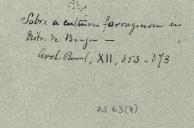 Sobre a cultura farraginosa no
Distr. de Braga —
Arch. Rural, XII, 353-373
AS 63(4)